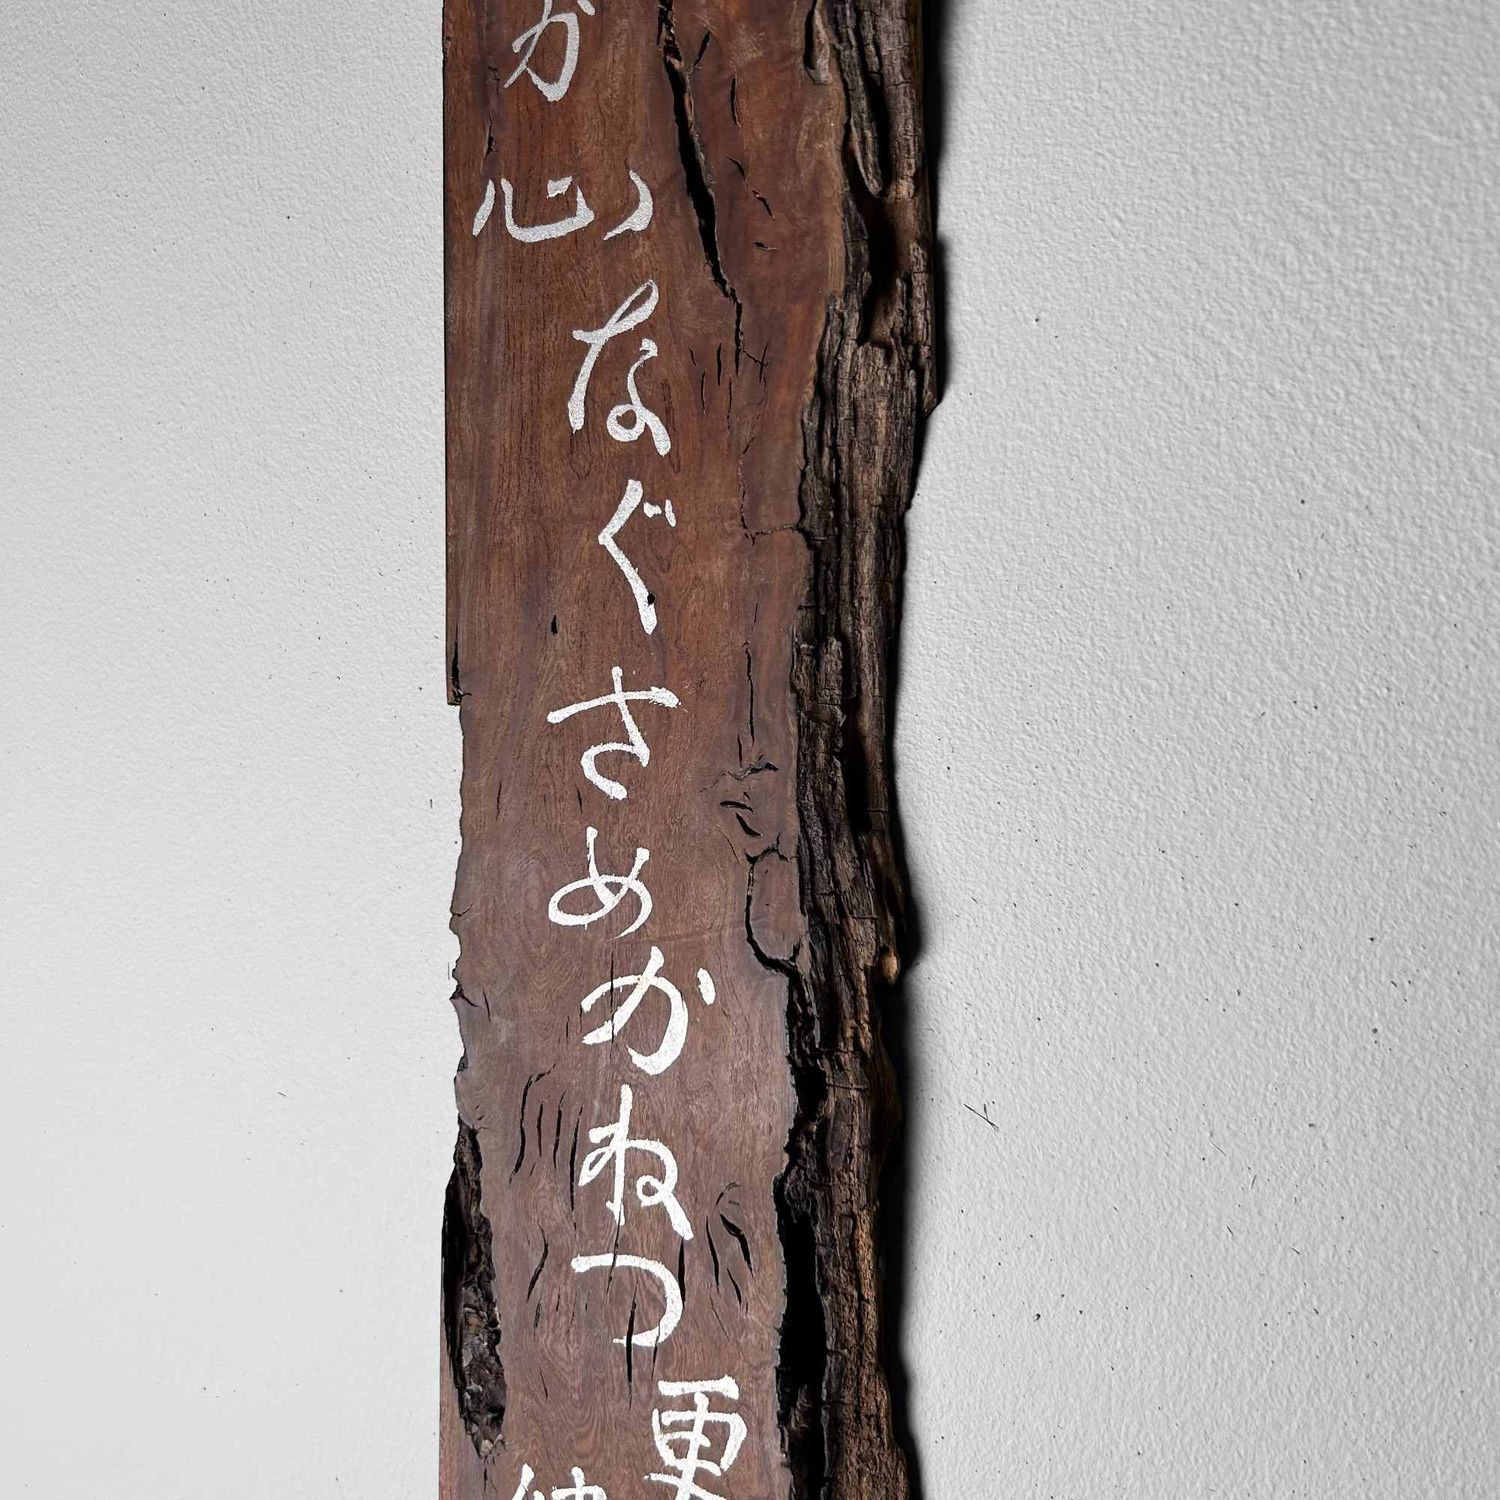 か心なぐさめかねつ
更